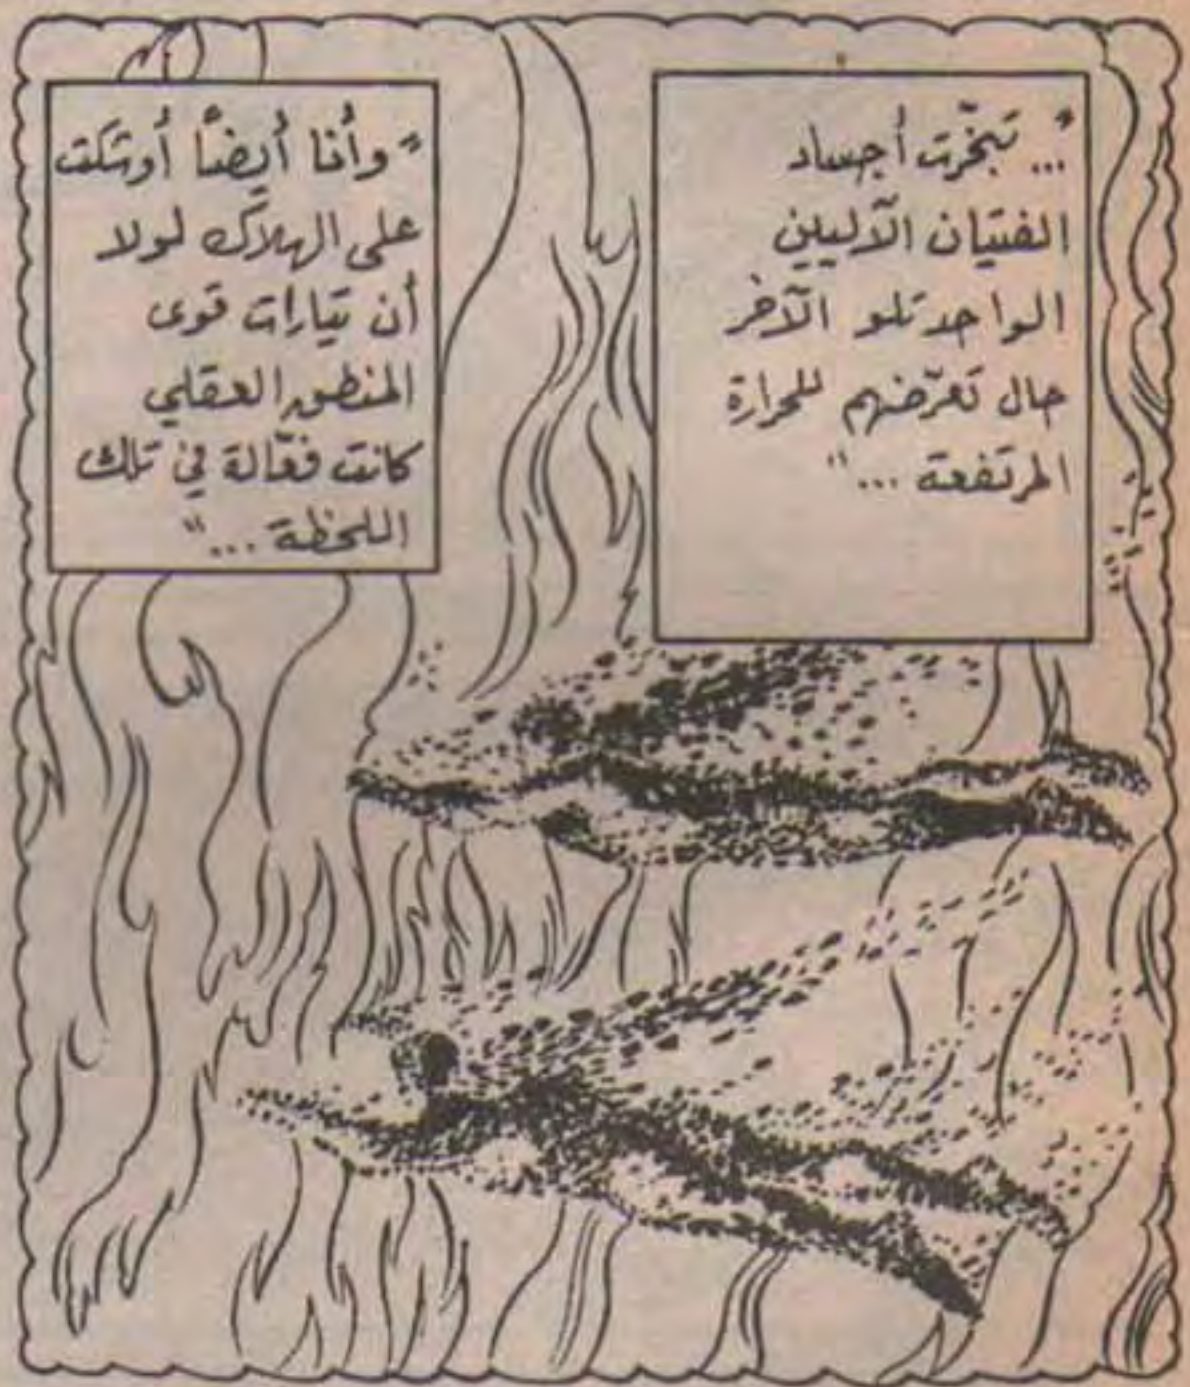 "... تبخّرت أجساد
الفتيان الآليين
الواحد تلو الآخر
حال تعرّضهم للحرارة
المرتفعة ..."
"وأنا أيضاً أوشكت
على الهلاك لولا
أن تيارات قوى
المنطق العقلي
كانت فعّالة في تلك
اللحظة ..."